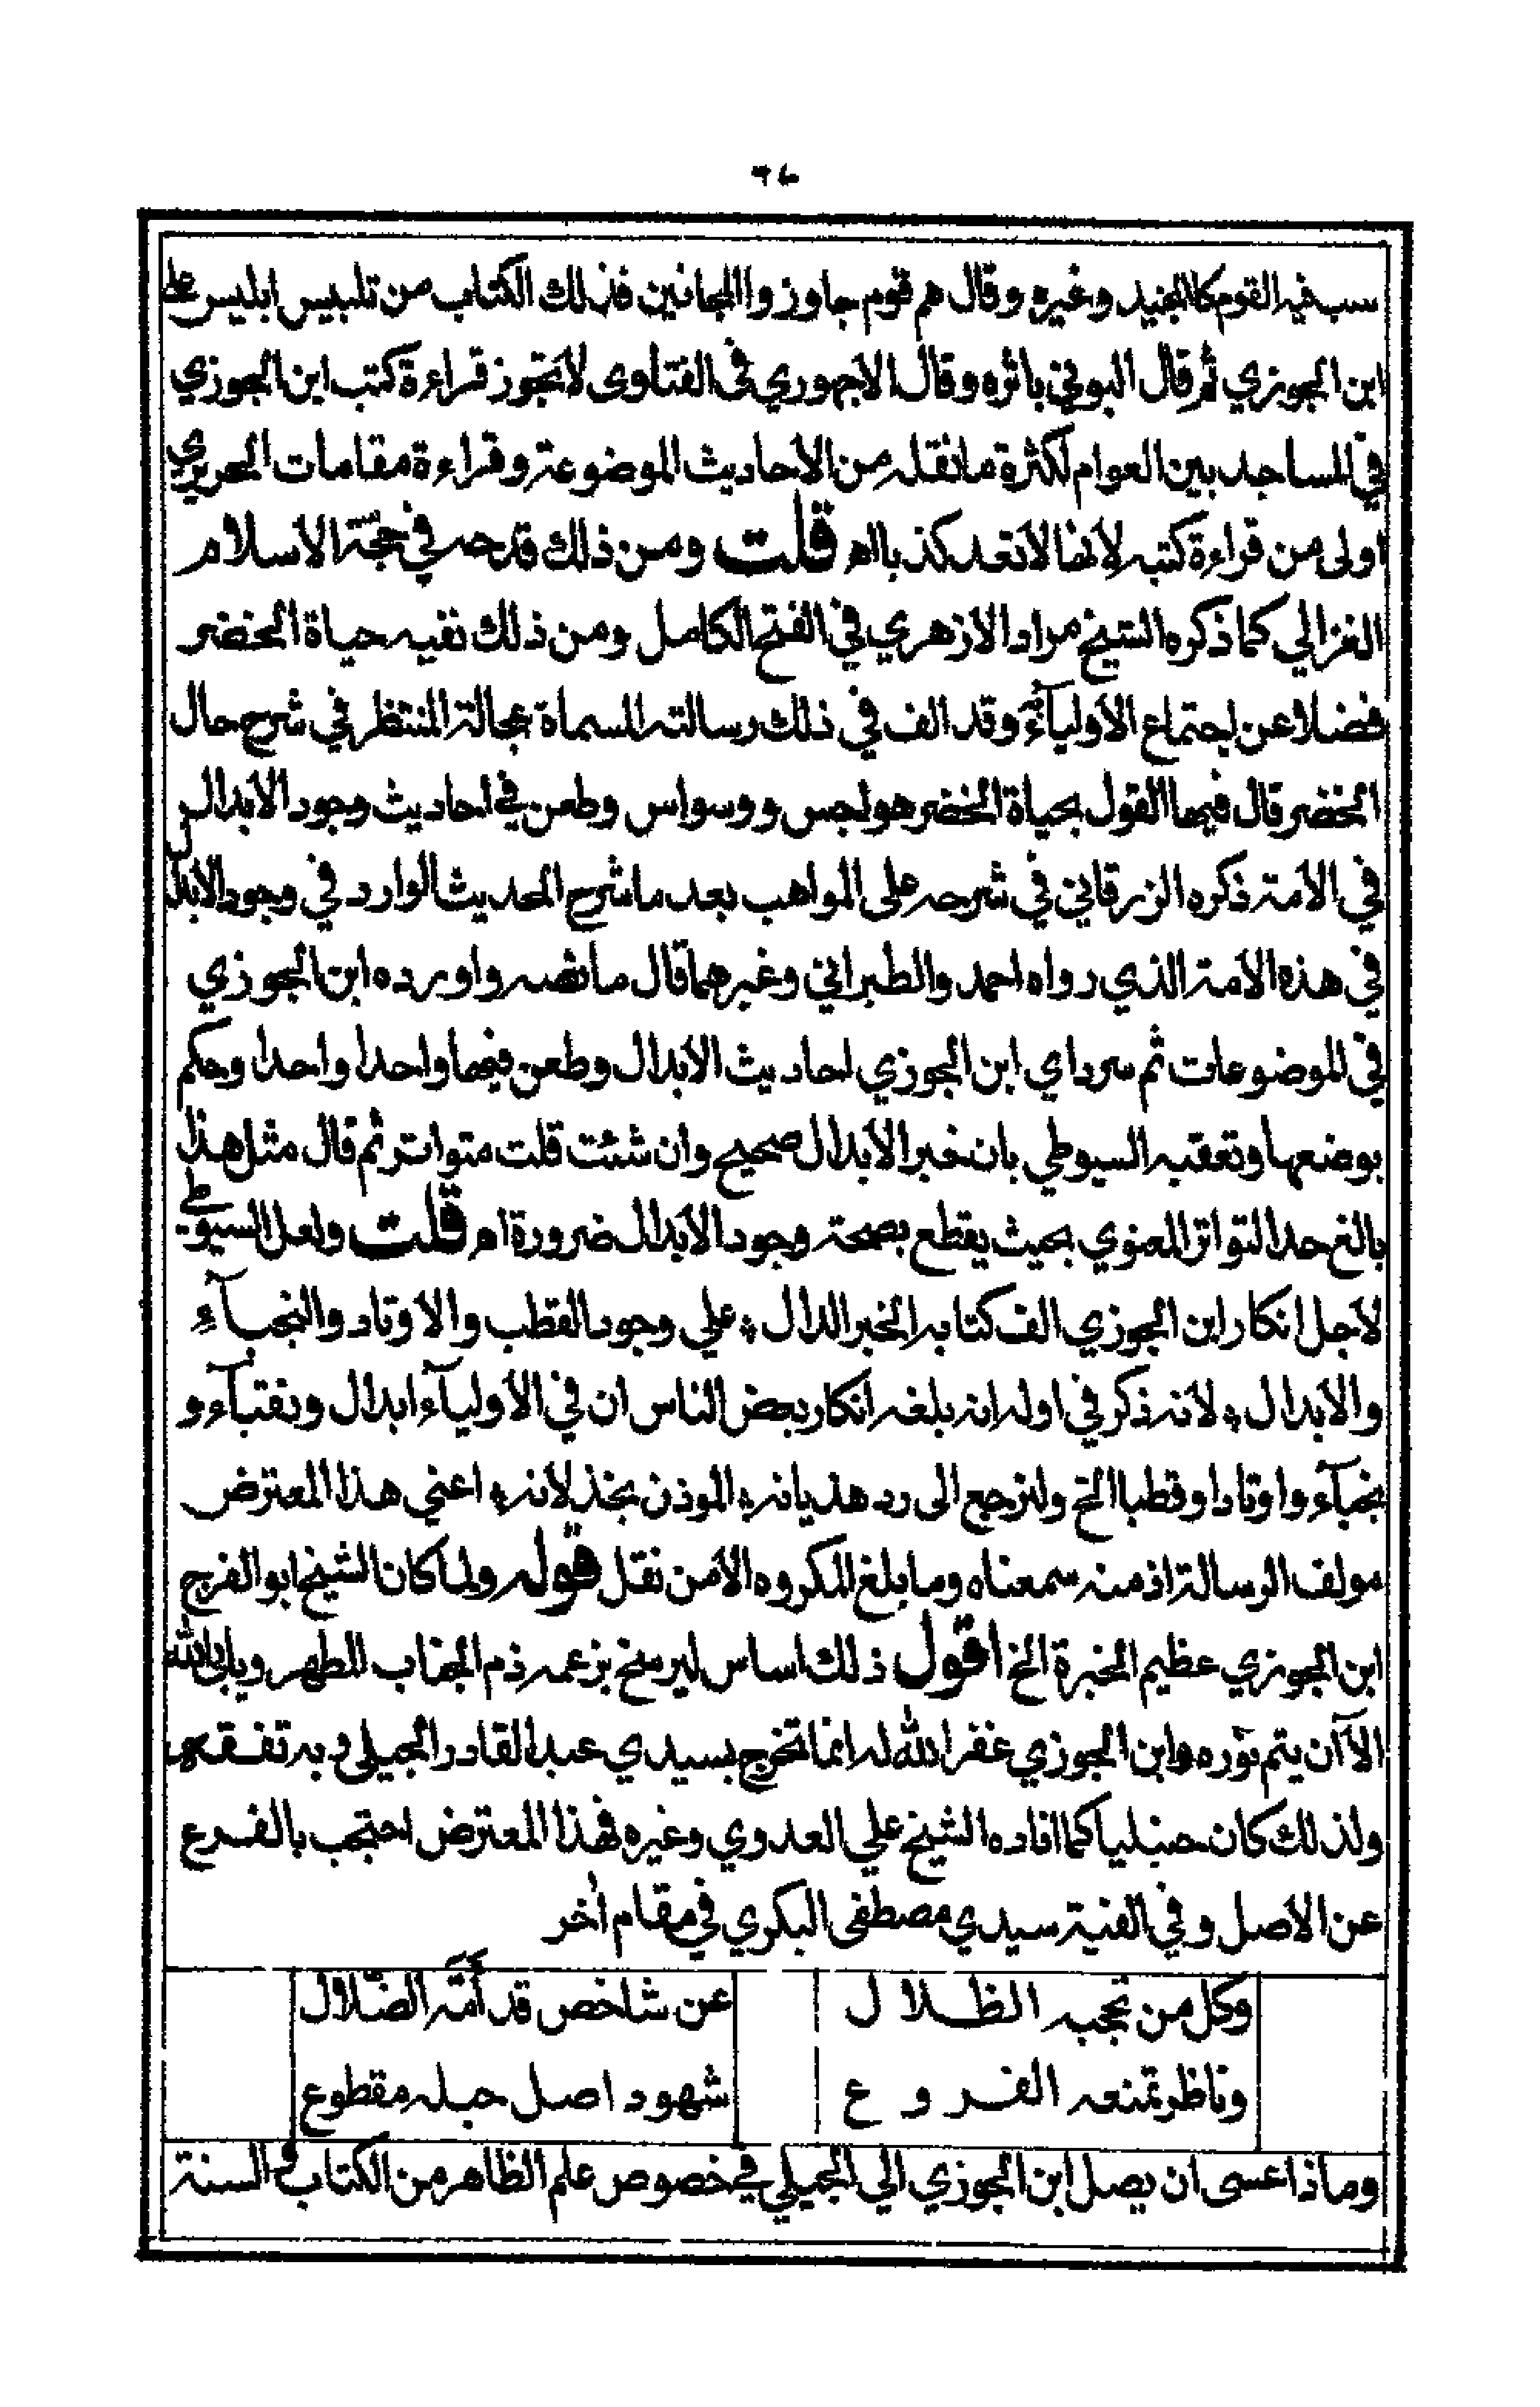 سب فيه القوم كالجنيد وغيره وقال هم قوم جاوزوا المجانين فذلك الكتاب من تلبيس ابليس على
ابن الجوزي ثم قال البوني باثره وقال الاجهوري في الفتاوى لا تجوز قراءة كتب ابن الجوزي
في المساجد بين العوام لكثرة ما نقله من الأحاديث الموضوعة وقراءة مقامات الحريري
اولى من قراءة كتبه لأنها لا تعد كذبا اه قلت ومن ذلك قدحه في حجّة الاسلام
الغزالي كما ذكره الشيخ مراد الازهري في الفتح الكامل ومن ذلك نفيه حياة الخضر
فضلا عن اجتماع الأولياء به وقد الف في ذلك رسالته المسماة عجالة المنتظر في شرح حال
الخضر قال فيها القول بحياة الخضر هواجس ووسواس وطعن في احاديث وجود الأبدال
في الأمة ذكره الزرقاني في شرحه على المواهب بعد ما شرح الحديث الوارد في وجود الأبدال
في هذه الأمة الذي رواه احمد والطبراني وغيرهما قال ما نصه واورده ابن الجوزي
في الموضوعات ثم سرد اي ابن الجوزي احاديث الأبدال وطعن فيها واحدا واحدا وحكم
بوضعها وتعقبه السيوطي بان خبر الأبدال صحيح وان شئت قلت متواتر ثم قال مثل هذا
بالغ حد التواتر المعنوي بحيث يقطع بصحة وجود الأبدال ضرورة اه قلت ولعل السيوطي
لأجل انكار ابن الجوزي الف كتابه الخبر الدال * على وجود القطب والاوتاد والنجبآء
والابدال * لأنه ذكر في اوله انه بلغه انكار بعض الناس ان في الأوليآء ابدال ونقبآء و
نجبآء واوتادا وقطبا الخ ولنرجع الى رد هذيانه * الموذن بخذلانه * اعني هذا المعترض
مولف الرسالة اذ منه سمعناه وما بلغ المكروه الأمن نقل قوله ولما كان الشيخ ابو الفرج
ابن الجوزي عظيم الخبرة الخ اقول ذلك اساس ليرسخ بزعمه ذم الجناب المطهر ويابى الله
الاّ آن يتم نوره وابن الجوزي غفر الله له انما تخرج بسيدي عبد القادر الجيلي وبه تفقه
ولذلك كان حنبليا كما افاده الشيخ علي العدوي وغيره فهذا المعترض احتجب بالفرع
عن الأصل وفي الفية سيدي مصطفى البكري في مقام اخر
وكل من تحجبه الظلال عن شاخص قد أمّه الضّلال
وناظر تمنعه الفروع شهود اصل حبله مقطوع
وماذا عسى ان يصل ابن الجوزي الي الجيلي في خصوص علم الظاهر من الكتاب والسنة